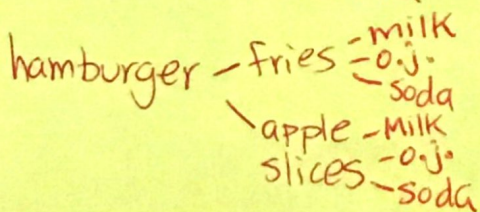 hamburger - fries - milk
- o.j.
- soda
apple slices - Milk
- o.j.
- soda